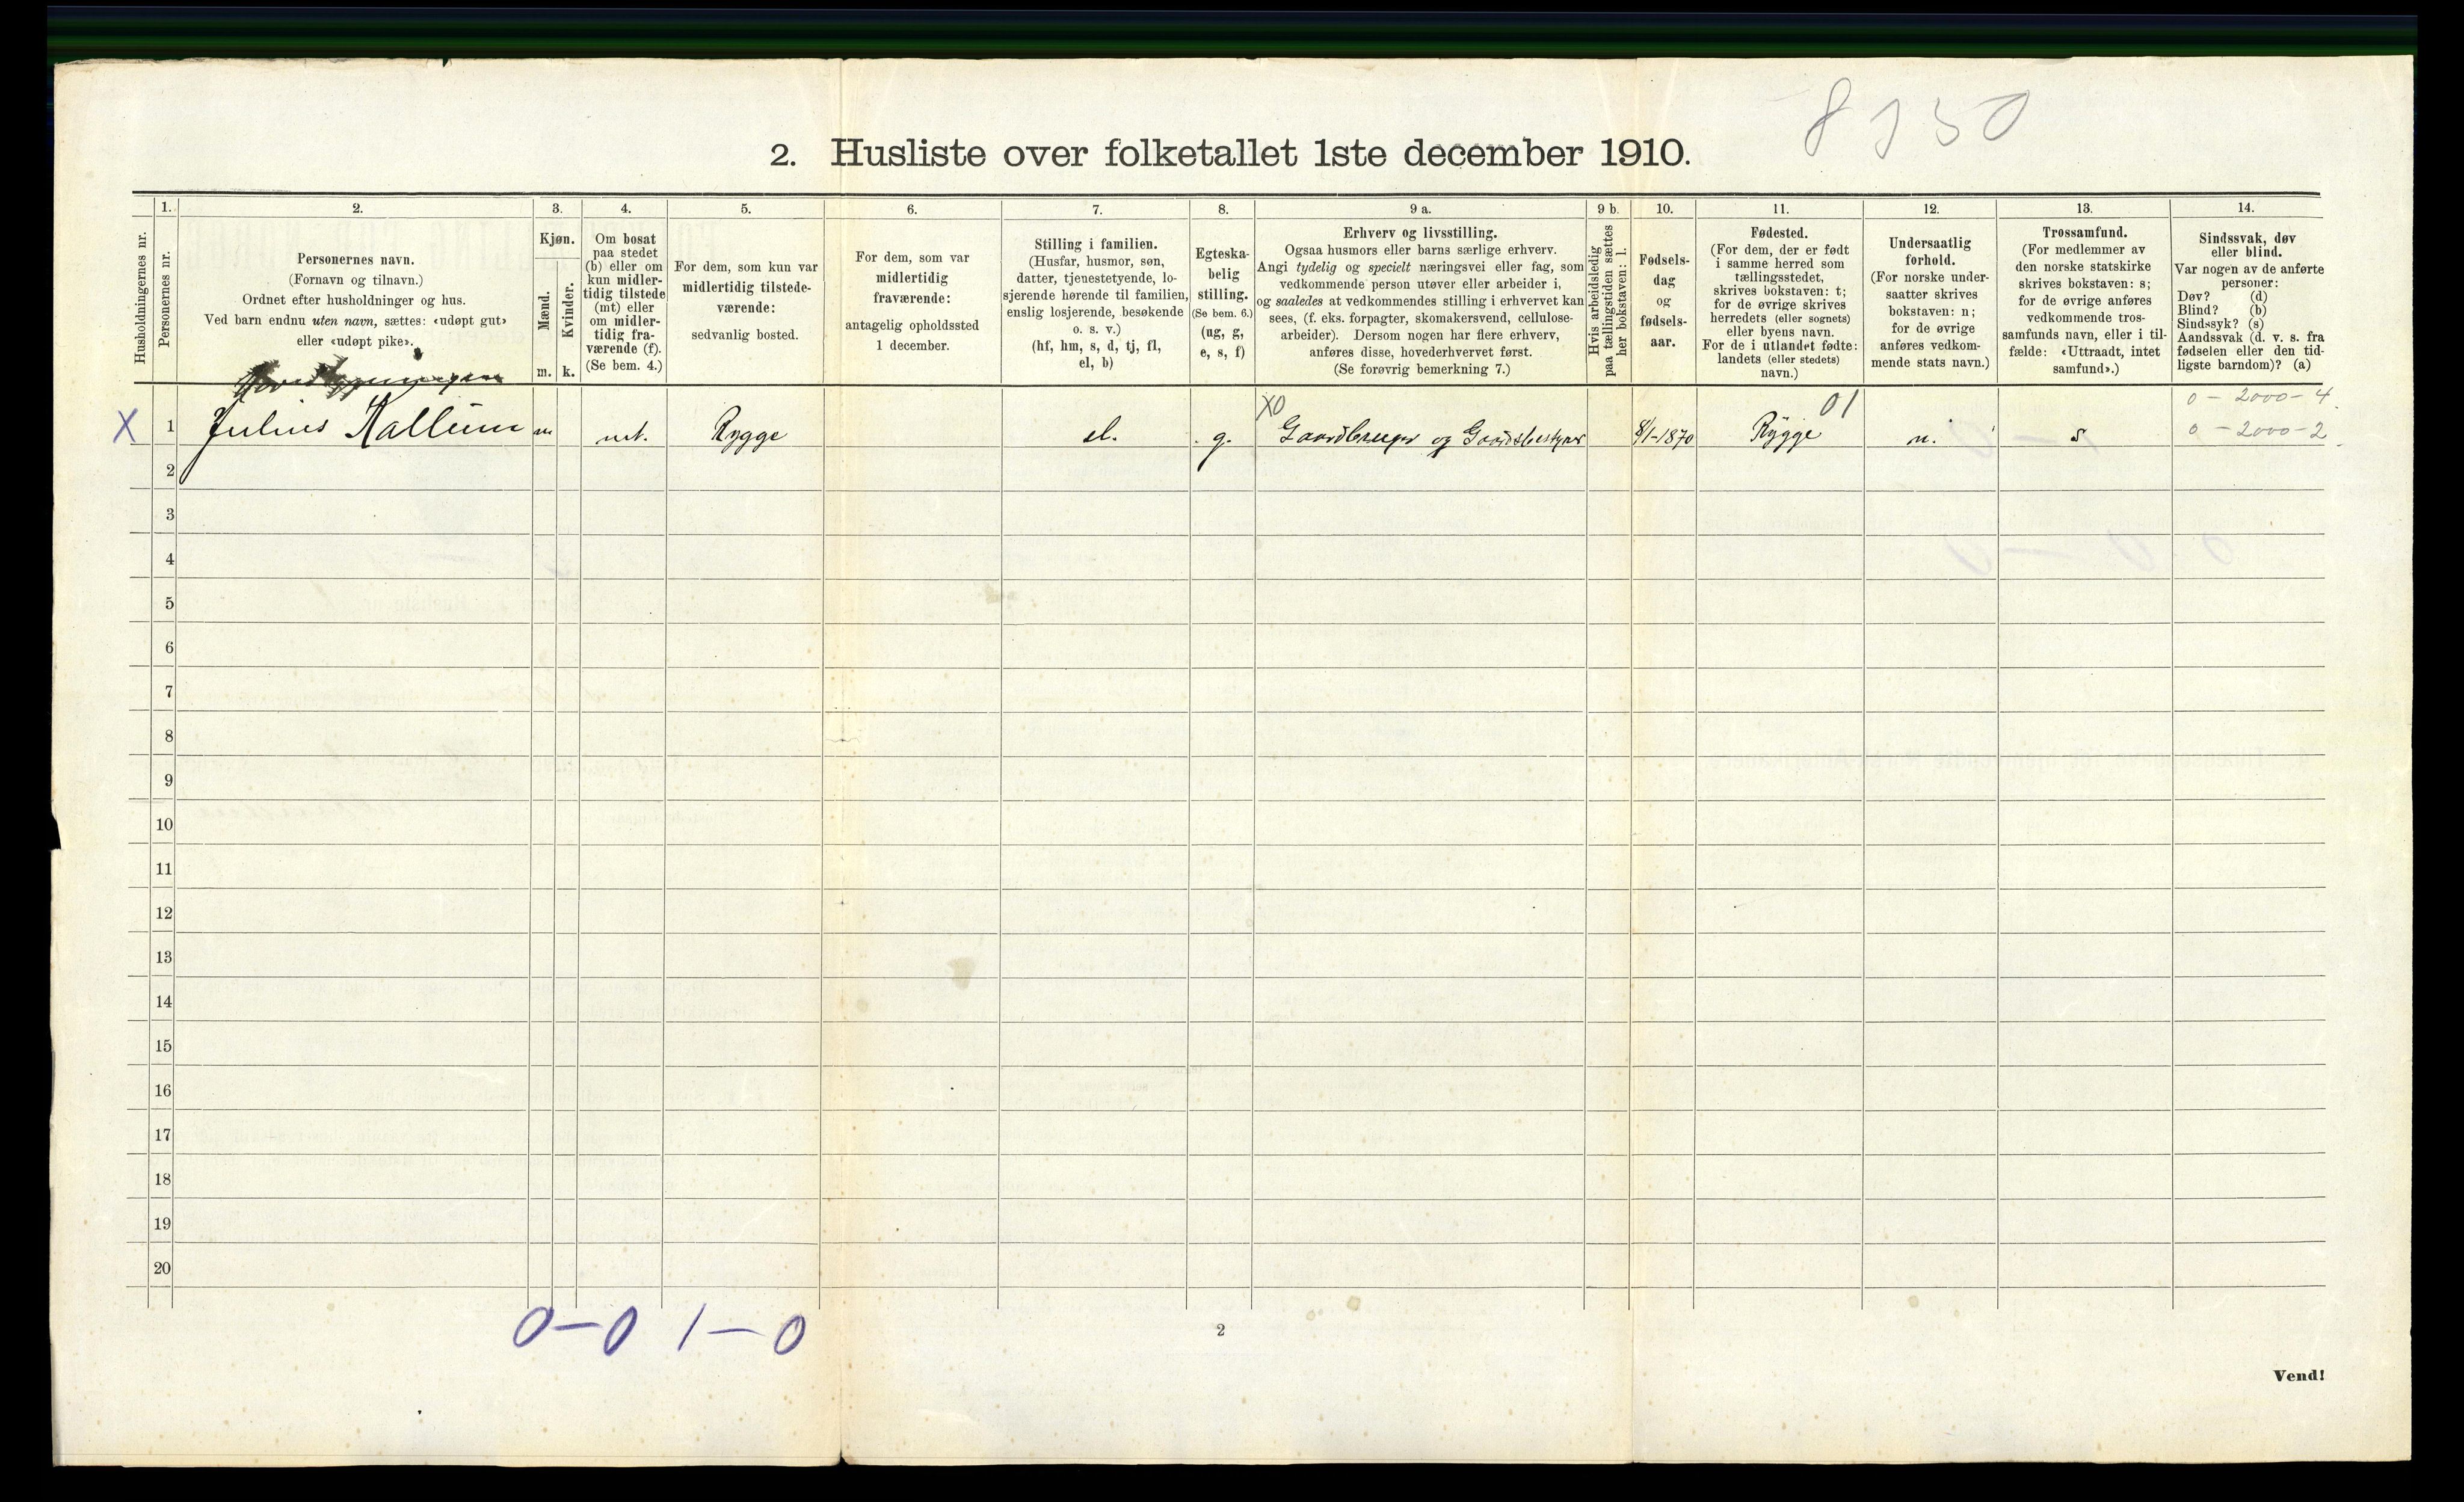 8150
2. Husliste over folketallet 1ste december 1910.
Husholdningernes nr.
1.
Personernes nr.
2.
Personernes navn.
(Fornavn og tilnavn.)
Ordnet efter husholdninger og hus.
Ved barn endnu uten navn, sættes: «udøpt gut»
eller «udøpt pike».
3.
Kjøn.
Mænd.
Kvinder.
m. k.
4.
Om bosat
paa stedet
(b) eller om
kun midler-
tidig tilstede
(mt) eller
om midler-
tidig fra-
værende (f).
(Se bem. 4.)
5.
For dem, som kun var
midlertidig tilstede-
værende:
sedvanlig bosted.
6.
For dem, som var
midlertidig
fraværende:
antagelig opholdssted
1 december.
7.
Stilling i familien.
(Husfar, husmor, søn,
datter, tjenestetyende, lo-
sjerende hørende til familien,
enslig losjerende, besøkende
o. s. v.)
(hf, hm, s, d, tj, fl,
el, b)
8.
Egteska-
belig
stilling.
(Se bem. 6.)
(ug, g,
e, s, f)
9 a.
Erhverv og livsstilling.
Ogsaa husmors eller barns særlige erhverv.
Angi tydelig og specielt næringsvei eller fag, som
vedkommende person utøver eller arbeider i,
og saaledes at vedkommendes stilling i erhvervet kan
sees, (f. eks. forpagter, skomakersvend, cellulose-
arbeider). Dersom nogen har flere erhverv,
anføres disse, hovederhvervet først.
(Se forøvrig bemerkning 7.)
9 b.
Hvis arbeidsledig
paa tællingstiden sættes
her bokstaven: l.
10.
Fødsels-
dag
og
fødsels-
aar.
11.
Fødested.
(For dem, der er født
i samme herred som
tællingsstedet,
skrives bokstaven: t;
for de øvrige skrives
herredets (eller sognets)
eller byens navn.
For de i utlandet fødte:
landets (eller stedets)
navn.)
12.
Undersaatlig
forhold.
(For norske under-
saatter skrives
bokstaven: n;
for de øvrige
anføres vedkom-
mende stats navn.)
13.
Trossamfund.
(For medlemmer av
den norske statskirke
skrives bokstaven: s;
for de øvrige anføres
vedkommende tros-
samfunds navn, eller i til-
fælde: «Uttraadt, intet
samfund».)
14.
Sindssvak, døv
eller blind.
Var nogen av de anførte
personer:
Døv? (d)
Blind? (b)
Sindssyk? (s)
Aandssvak (d. v. s. fra
fødselen eller den tid-
ligste barndom)? (a)
X0 01 0 - 2000 - 4
X 1 Julius Kallum m mt. Rygge el. g. Gaardbruger og Gaardsbestyrer 8/1-1870 Rygge n. s 0 - 2000 - 2
2
3
4
5
6
7
8
9
10
11
12
13
14
15
16
17
18
19
20
0-0 1-0
2
Vend!